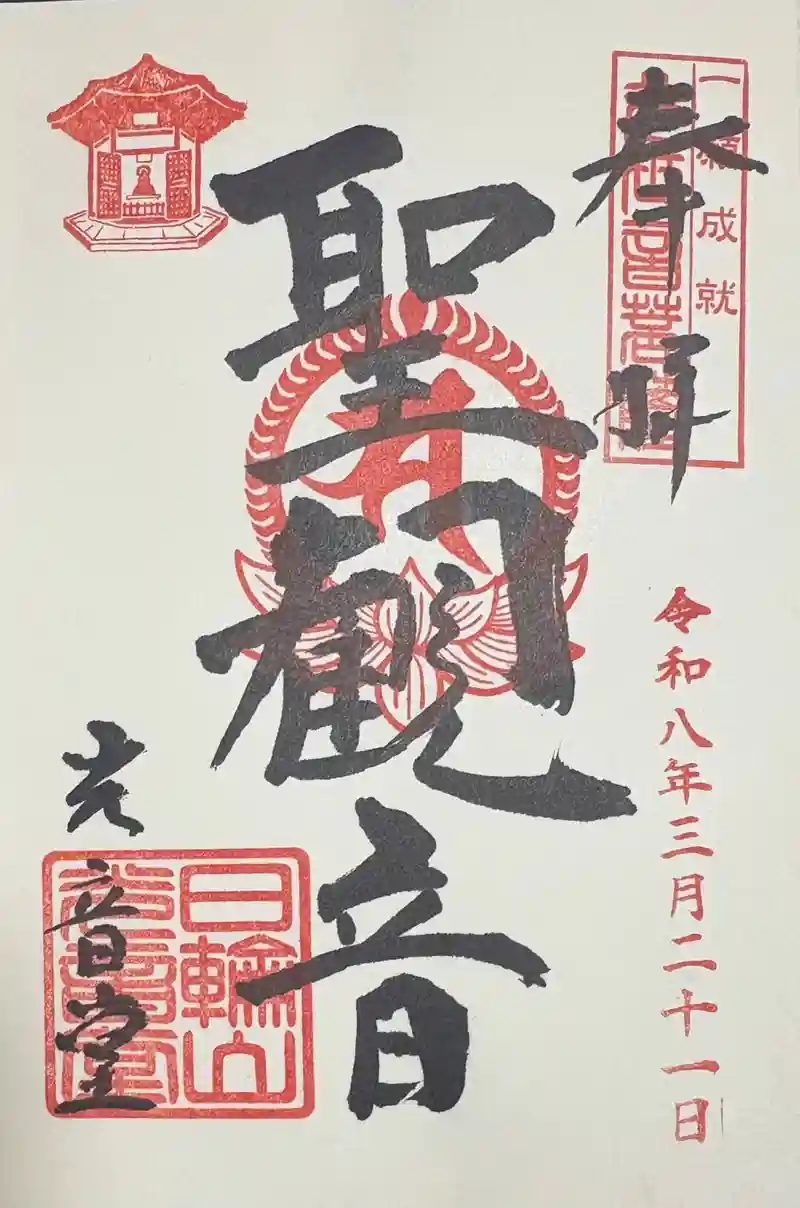 一願成就
奉拝
令和八年三月二十一日
聖観音
光音堂
日輪山